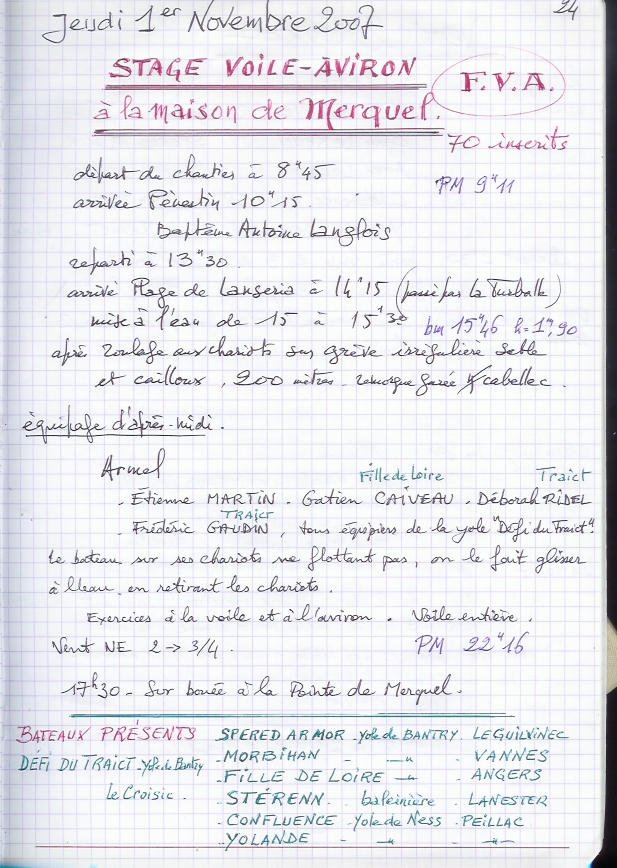 24
Jeudi 1er Novembre 2007
STAGE VOILE-AVIRON
F.V.A.
à la maison de Merquel.
70 inscrits
départ du chantier à 8h45
PM 9h11
arrivée Pénestin 10h15.
Baptême Antoine Langlois
reparti à 13h30.
arrivé Plage de Lanseria à 14h15 (passé par La Turballe)
mise à l'eau de 15 à 15h30 bm 15h46 h=1m,90
après roulage aux chariots sur grève irrégulière sable
et cailloux, 200 mètres. remorque garée cabellec.
équipage d'après-midi.
Armel
Fille de Loire Traict
. Etienne MARTIN . Gatien CAIVEAU . Déborah RIDEL
TRAICT
. Frédéric GAUDIN, tous équipiers de la yole "Défi du Traict".
Le bateau sur ses chariots ne flottant pas, on le fait glisser
à l'eau en retirant les chariots.
Exercices à la voile et à l'aviron. Voile entière.
Vent NE 2 → 3/4. PM 22h16
17h30 - Sur bouée à la Pointe de Merquel.
BATEAUX PRÉSENTS
DÉFI DU TRAICT - Yole de Bantry
Le Croisic.
SPERED ARMOR - Yole de BANTRY. LE GUILVINEC
- MORBIHAN - —"— - VANNES
- FILLE DE LOIRE —"— - ANGERS
- STÉRENN. baleinière . LANESTER
- CONFLUENCE - Yole de Ness . PEILLAC
- YOLANDE - —"— - —"—